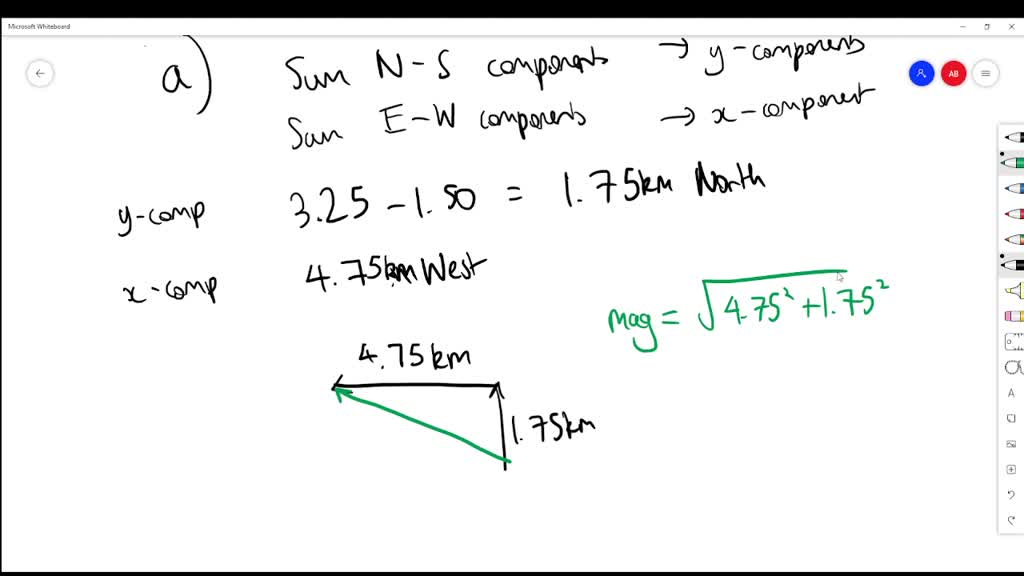 Microsoft Whiteboard
AB
a) Sum N-S components → y-components
Sum E-W components → x-component
y-comp 3.25 - 1.50 = 1.75km North
x-comp 4.75km West
mag = √4.75² + 1.75²
4.75 km
1.75km
A